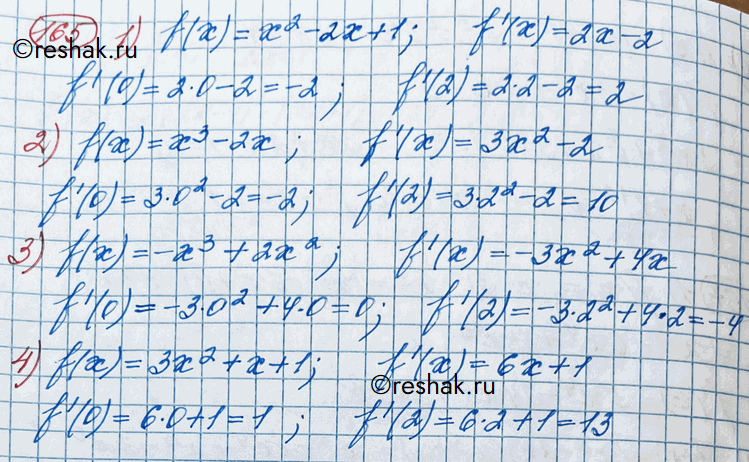 165 1) f(x) = x² - 2x + 1; f'(x) = 2x - 2
©reshak.ru
f'(0) = 2·0 - 2 = -2; f'(2) = 2·2 - 2 = 2
2) f(x) = x³ - 2x; f'(x) = 3x² - 2
f'(0) = 3·0² - 2 = -2; f'(2) = 3·2² - 2 = 10
3) f(x) = -x³ + 2x²; f'(x) = -3x² + 4x
f'(0) = -3·0² + 4·0 = 0; f'(2) = -3·2² + 4·2 = -4
4) f(x) = 3x² + x + 1; f'(x) = 6x + 1
©reshak.ru
f'(0) = 6·0 + 1 = 1; f'(2) = 6·2 + 1 = 13